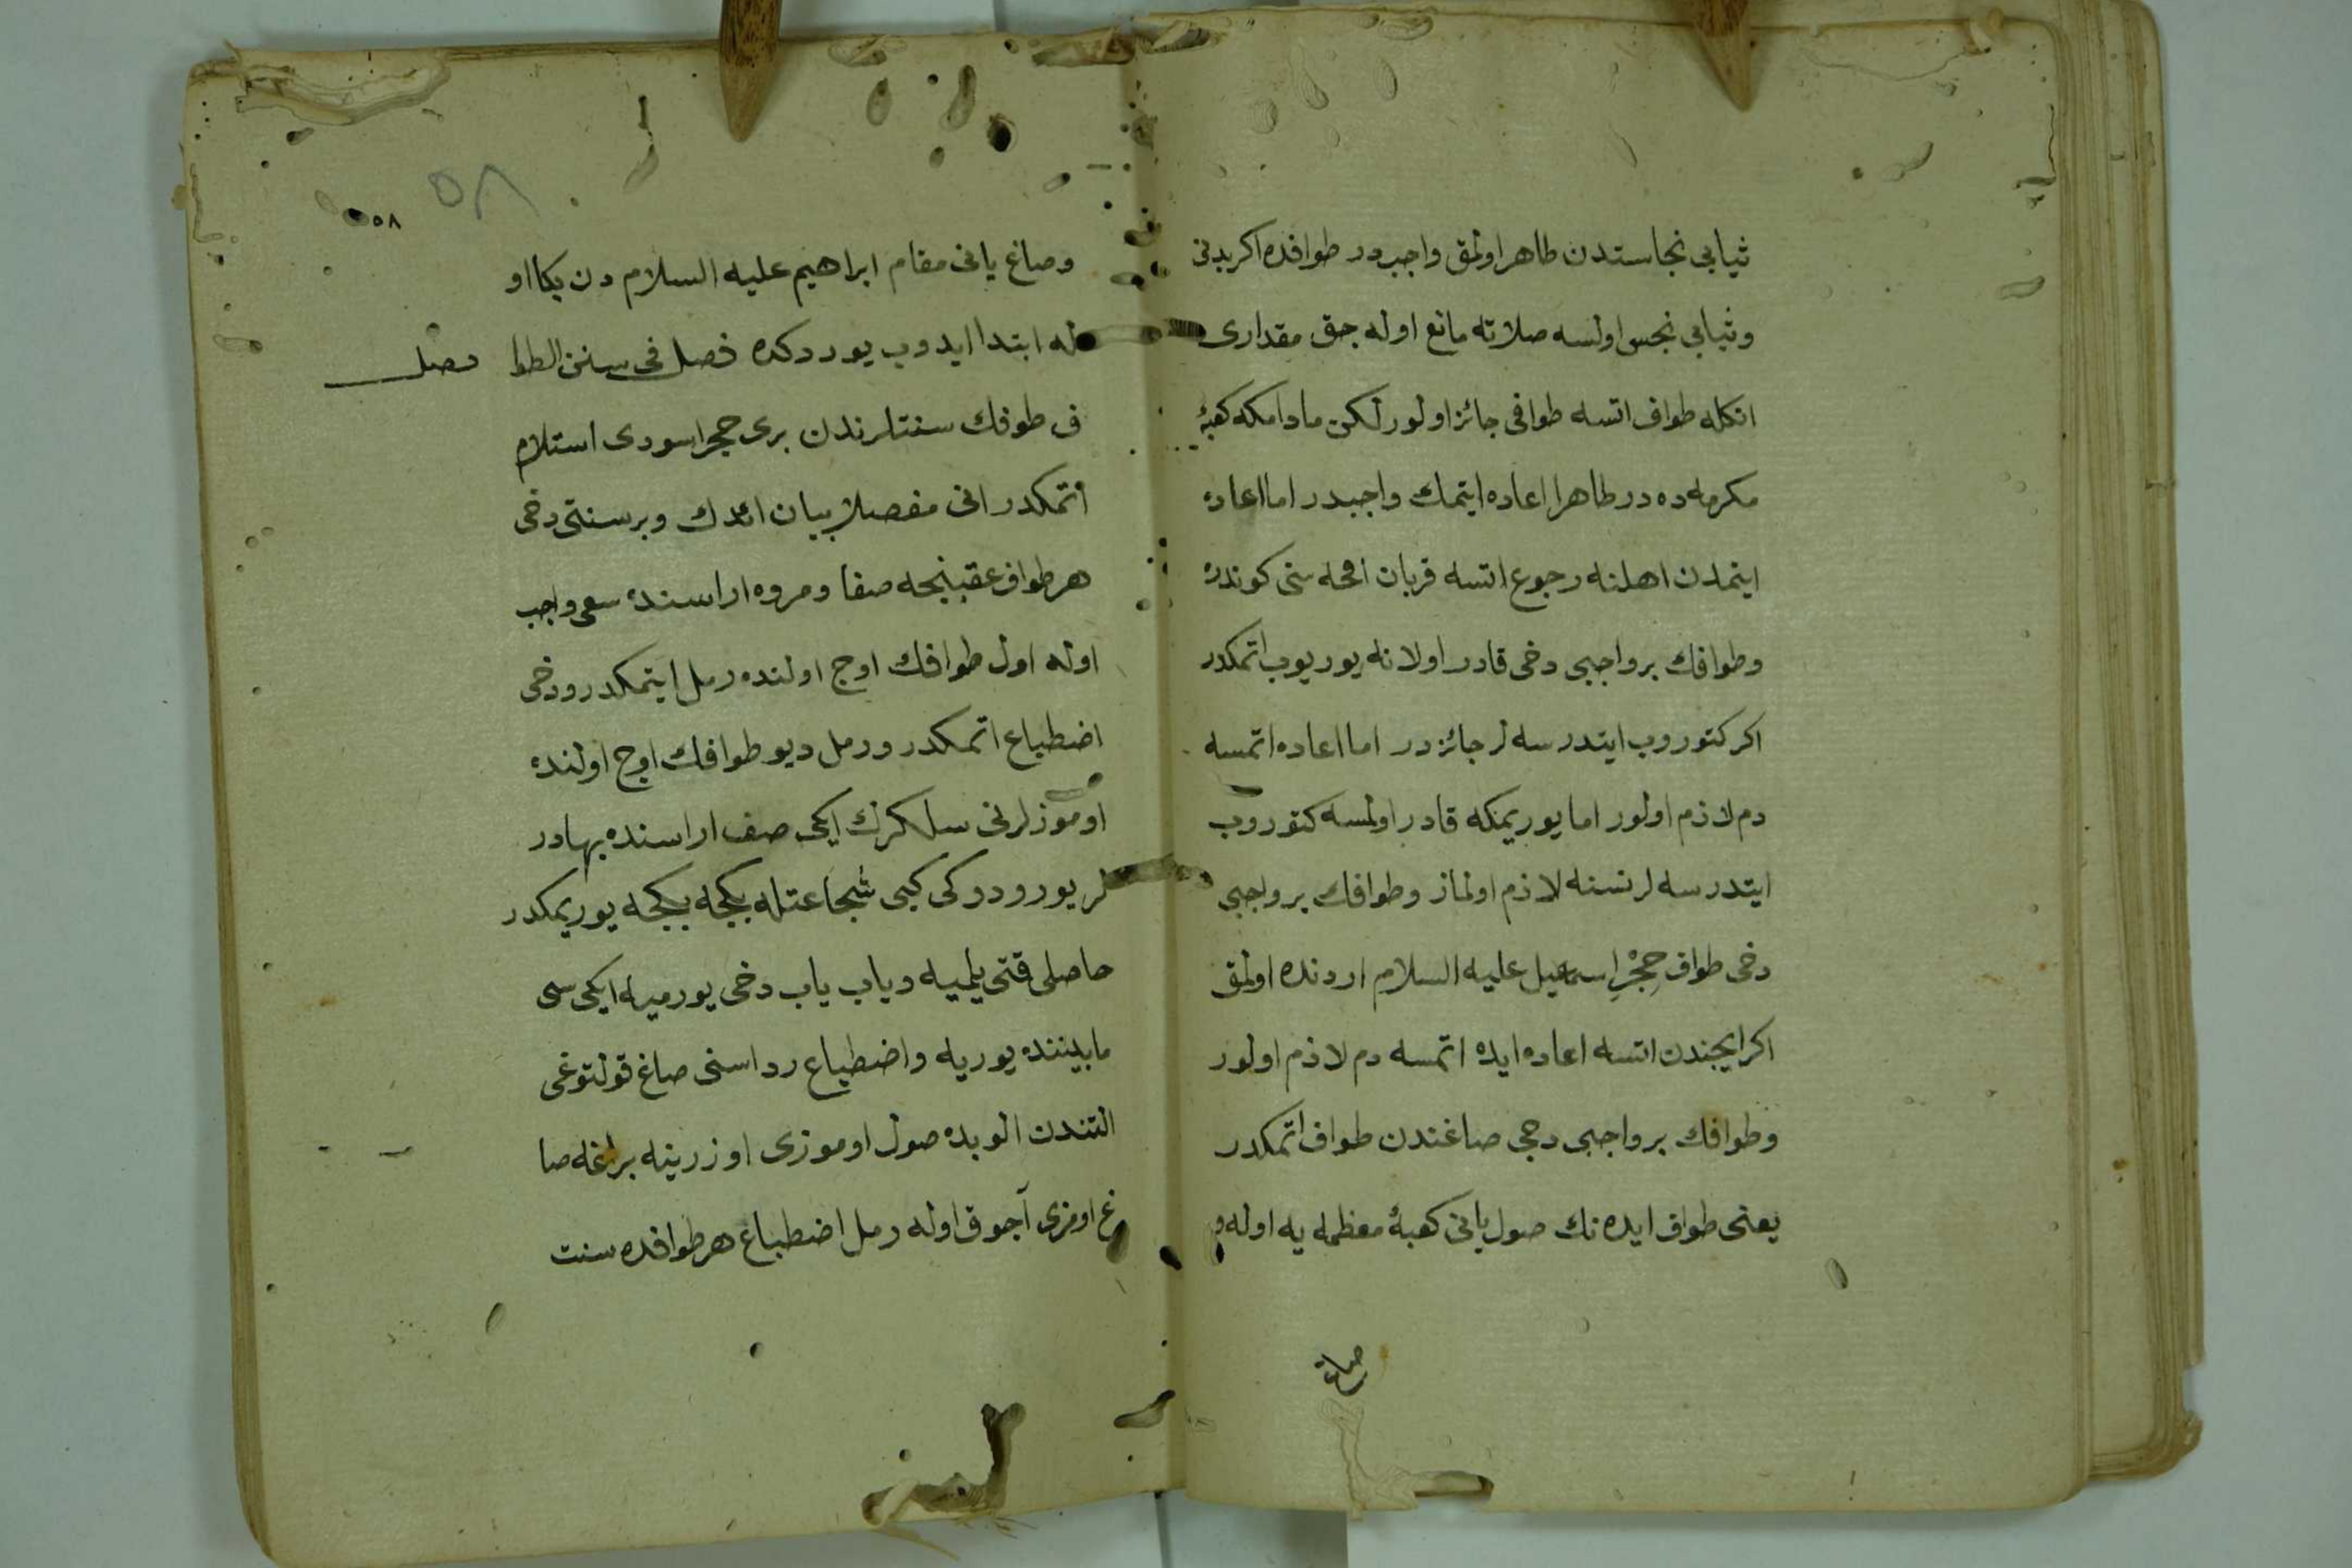 ثيابى نجاستدن طاهر اولمق واجبدر طوافده اكر بدنى
وثيابى نجس اولسه صلاته مانع اوله جق مقدارى
انكله طواف اتسه طوافى جائز اولور لكن مادامكه كعبۀ
مكرمه ده در طاهرا اعاده ايتمك واجبدر اما اعاده
ايتمدن اهلنه رجوع اتسه قربان اقچه سنى كوندره
وطوافك بر واجبى دخى قادر اولانه يوريوب اتمكدر
اكر كتوروب ايتدرسه لر جائزدر اما اعاده اتمسه
دم لازم اولور اما يوريمكه قادر اولمسه كتوروب
ايتدرسه لر نسنه لازم اولماز وطوافك بر واجبى
دخى طواف حِجْرِ اسمعيل عليه السلام اردنده اولمق
اكر ايچندن اتسه اعاده ايده اتمسه دم لازم اولور
وطوافك بر واجبى دخى صاغندن طواف اتمكدر
يعنى طواف ايده نك صول يانى كعبۀ معظمه يه اوله و
وصاغ
٥٨
٥٨
وصاغ يانى مقام ابراهيم عليه السلام دن يكا او
له ابتدا ايدوب يوردكده فصل فى سنن الطوا
فصل
ف طوفك سنتلرندن برى حجر اسودى استلام
اتمكدر انى مفصلا بيان اتدك وبر سنتى دخى
هر طواف عقبنجه صفا ومروه اراسنده سعى واجب
اوله اول طوافك اوج اولنده رمل ايتمكدر ودخى
اضطباع اتمكدر ورمل ديو طوافك اوج اولنده
اوموزلرنى سلكرك ايكى صف اراسنده بهادر
لر يورودوكى كبى شجاعتله بكجه بكجه يوريمكدر
حاصلى قتى يلميه وياب ياب دخى يورميه ايكى سى
مابيننده يوريه واضطباع رداسنى صاغ قولتوغى
التندن الوبده صول اوموزى اوزرينه براغه صا
غ اومزى آجوق اوله رمل اضطباع هر طوافده سنت